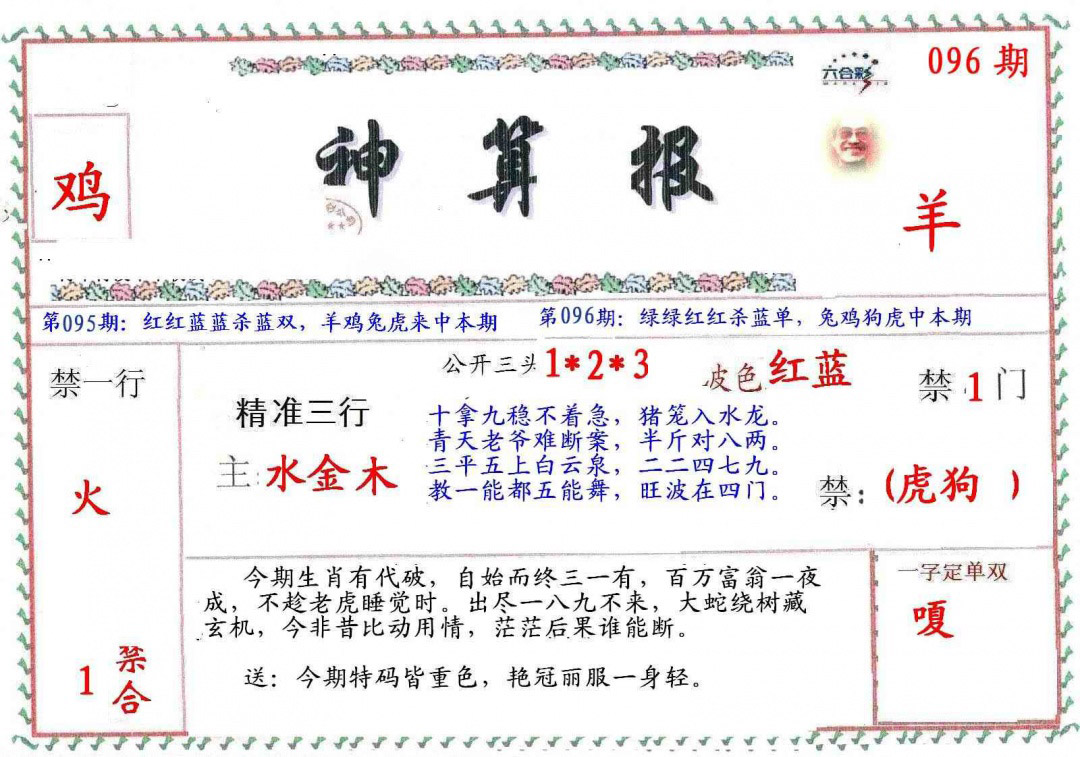 六合彩
096 期
鸡
神算报
羊
第095期：红红蓝蓝杀蓝双，羊鸡兔虎来中本期
第096期：绿绿红红杀蓝单，兔鸡狗虎中本期
禁一行
火
1 禁合
精准三行
主：水金木
公开三头 1*2*3
波色 红蓝
十拿九稳不着急，猪笼入水龙。
青天老爷难断案，半斤对八两。
三平五上白云泉，二二四七九。
教一能都五能舞，旺波在四门。
禁 1 门
禁：(虎狗 )
今期生肖有代破，自始而终三一有，百万富翁一夜
成，不趁老虎睡觉时。出尽一八九不来，大蛇绕树藏
玄机，今非昔比动用情，茫茫后果谁能断。
送：今期特码皆重色，艳冠丽服一身轻。
一字定单双
嘎